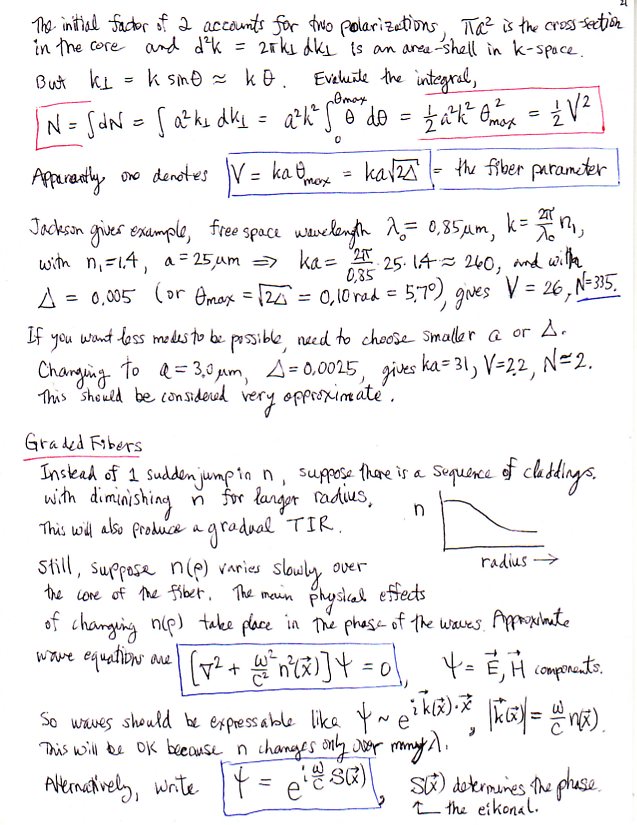 21
The initial factor of 2 accounts for two polarizations, πa² is the cross-section
in the core and d²k = 2πk⊥ dk⊥ is an area-shell in k-space.
But k⊥ = k sinθ ≈ kθ. Evaluate the integral,
N = ∫dN = ∫ a²k⊥ dk⊥ = a²k² ∫₀^θmax θ dθ = ½ a²k² θ²max = ½ V²
Apparently one denotes V = kaθmax = ka√2Δ = the fiber parameter
Jackson gives example, free space wavelength λ₀ = 0,85μm, k = 2π/λ₀ n₁,
with n₁=1.4, a = 25μm ⟹ ka = 2π/0,85 · 25 · 1.4 ≈ 260, and with
Δ = 0,005 (or θmax = √2Δ = 0,10 rad = 5,7°), gives V = 26, N=335.
If you want less modes to be possible, need to choose smaller a or Δ.
Changing to a = 3,0μm, Δ=0,0025, gives ka=31, V=2.2, N≃2.
This should be considered very approximate.
Graded Fibers
Instead of 1 sudden jump in n, suppose there is a sequence of claddings.
with diminishing n for larger radius.
This will also produce a gradual TIR.
n
radius →
Still, suppose n(ρ) varies slowly over
the core of the fiber. The main physical effects
of changing n(ρ) take place in the phase of the waves. Approximate
wave equations are [∇² + ω²/c² n²(x⃗)] Ψ = 0, Ψ = E⃗, H⃗ components.
So waves should be expressable like Ψ ~ e^{i k⃗(x⃗)·x⃗}, |k⃗(x⃗)| = ω/c n(x⃗).
This will be OK because n changes only over many λ.
Alternatively, write Ψ = e^{i ω/c S(x⃗)}, S(x⃗) determines the phase.
↑ the eikonal.